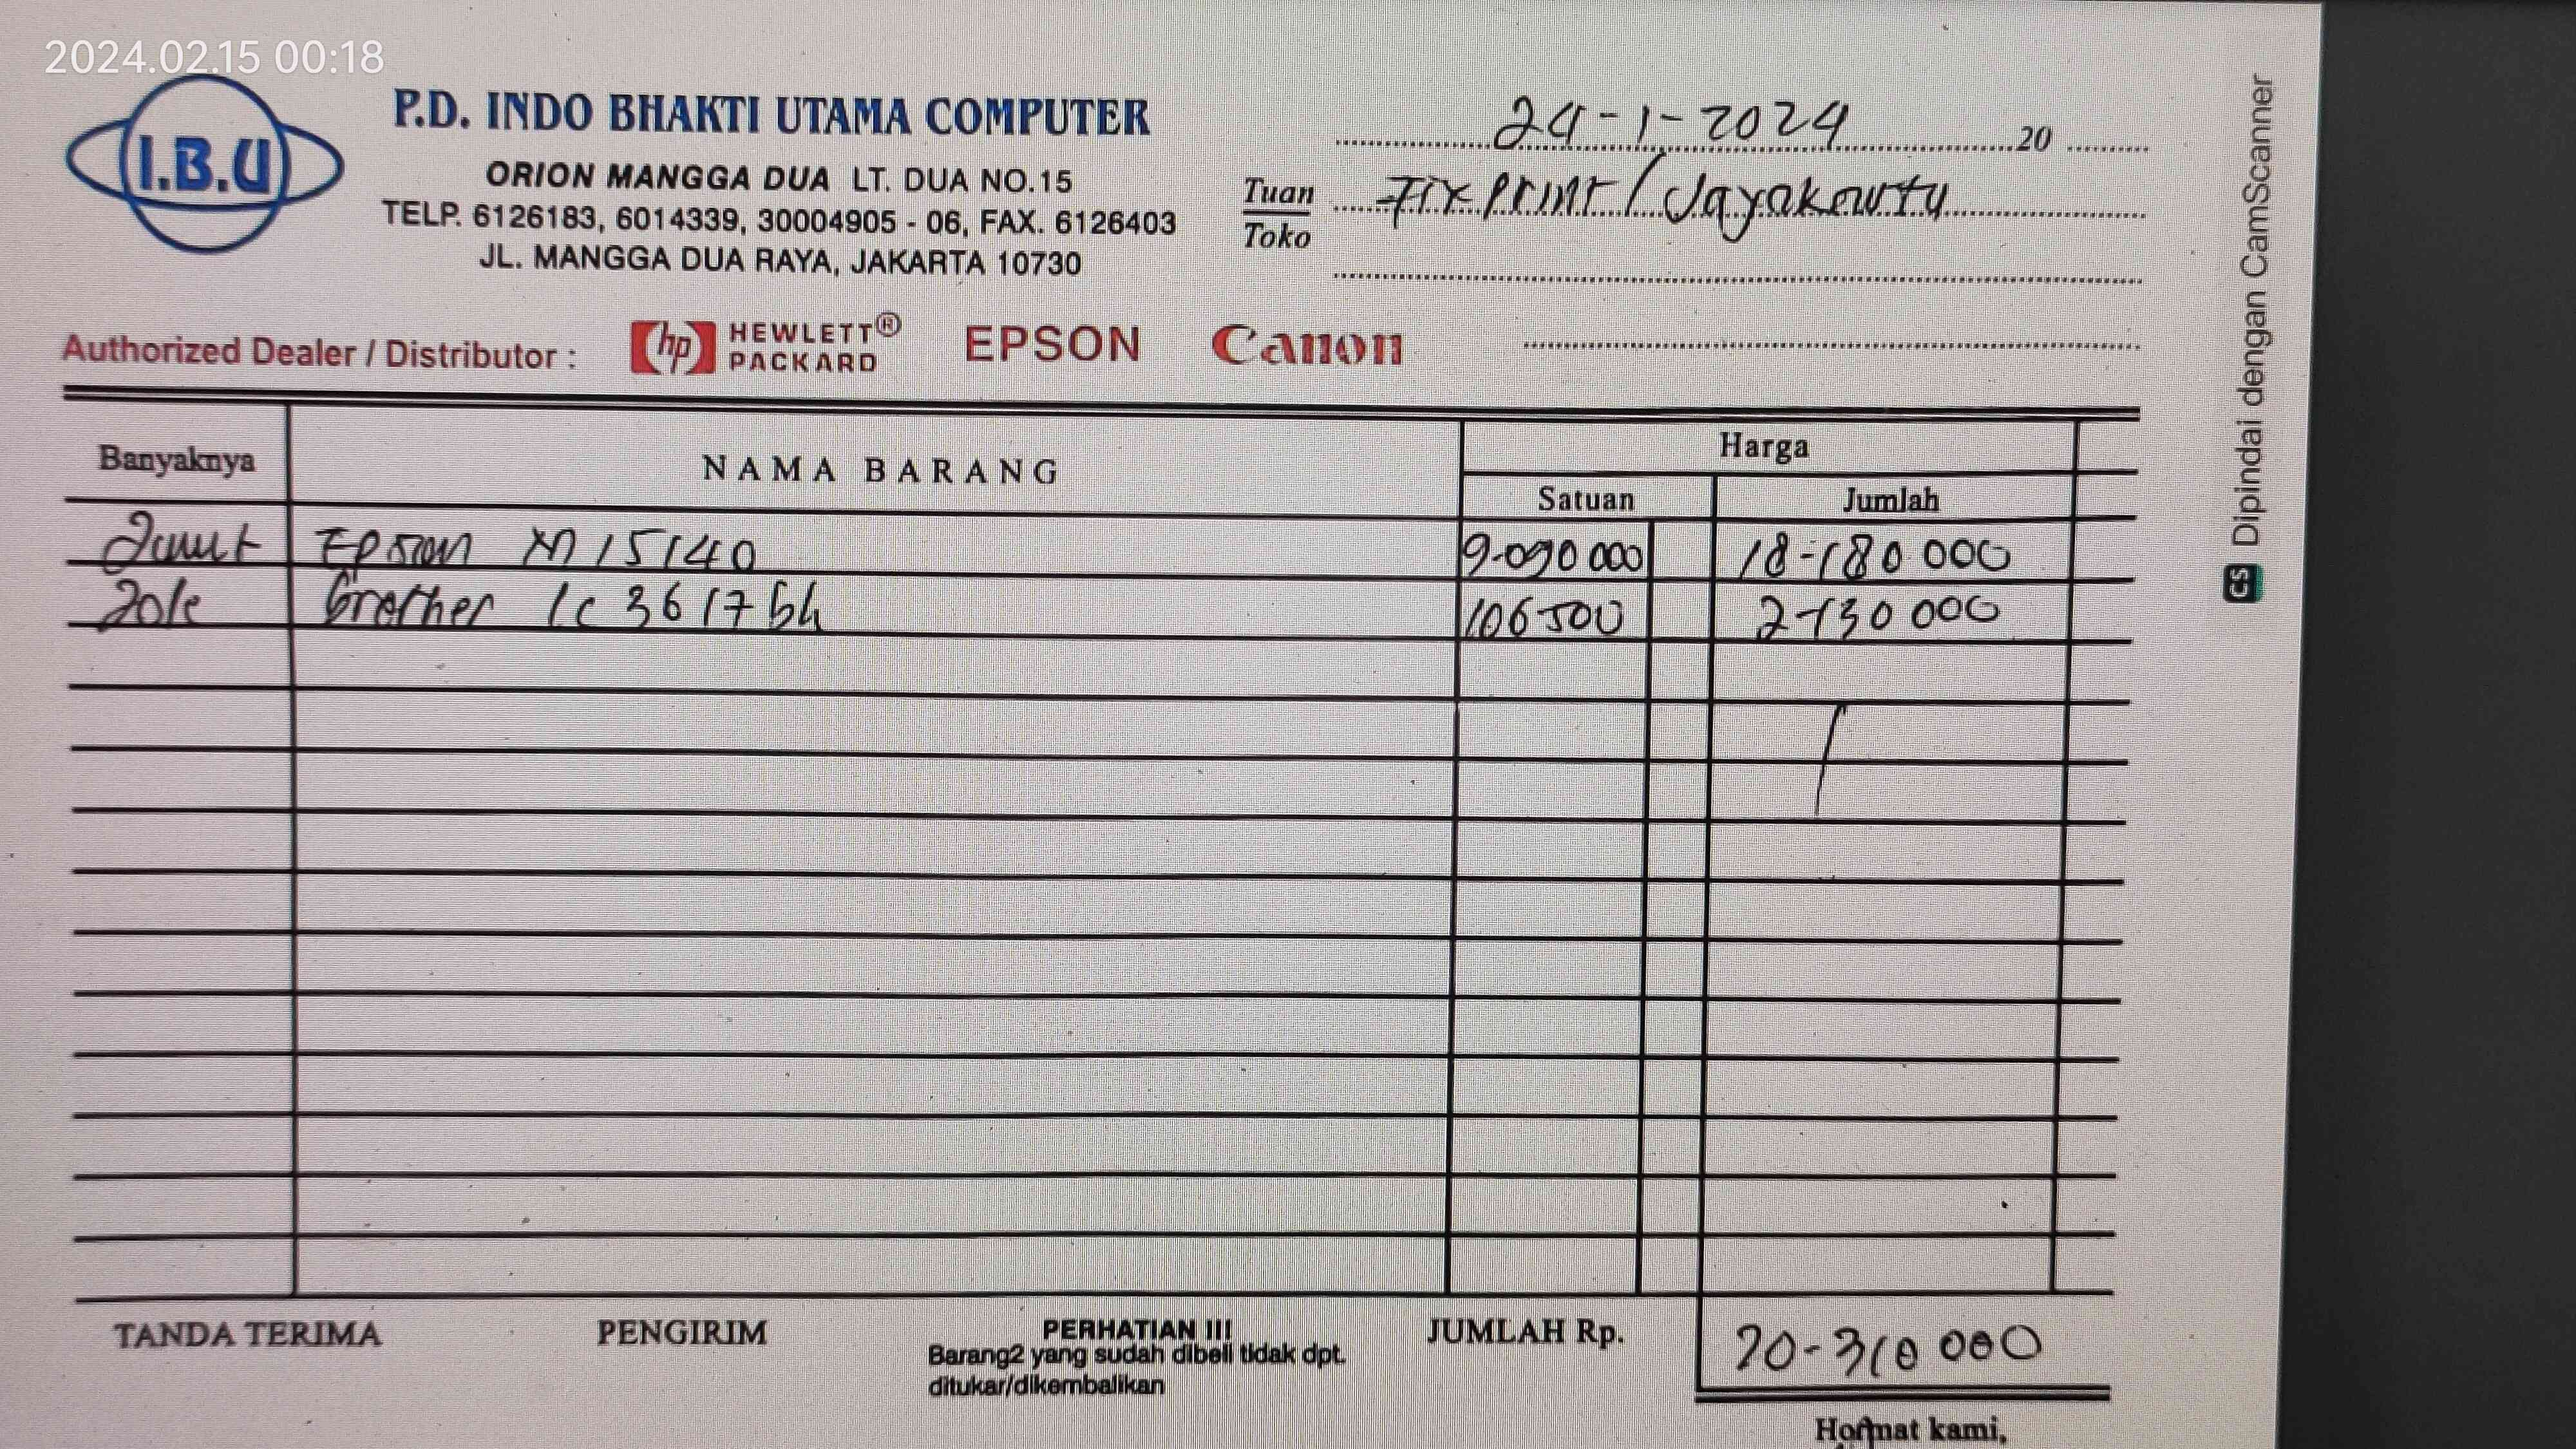 2024.02.15 00:18
I.B.U
P.D. INDO BHAKTI UTAMA COMPUTER
ORION MANGGA DUA LT. DUA NO.15
TELP. 6126183, 6014339, 30004905 - 06, FAX. 6126403
JL. MANGGA DUA RAYA, JAKARTA 10730
24-1-2024 20
Tuan
Toko
Fixprint / Jayakarta
Authorized Dealer / Distributor : hp HEWLETT® PACKARD EPSON Canon
Banyaknya NAMA BARANG Harga
Satuan Jumlah
2unit Epson M15140 9-090 000 18-180 000
20 Brother lc 3617 bk 106 500 2-130 000
TANDA TERIMA PENGIRIM PERHATIAN !!! JUMLAH Rp. 20-310 000
Barang2 yang sudah dibeli tidak dpt.
ditukar/dikembalikan
Hormat kami,
Dipindai dengan CamScanner
CS